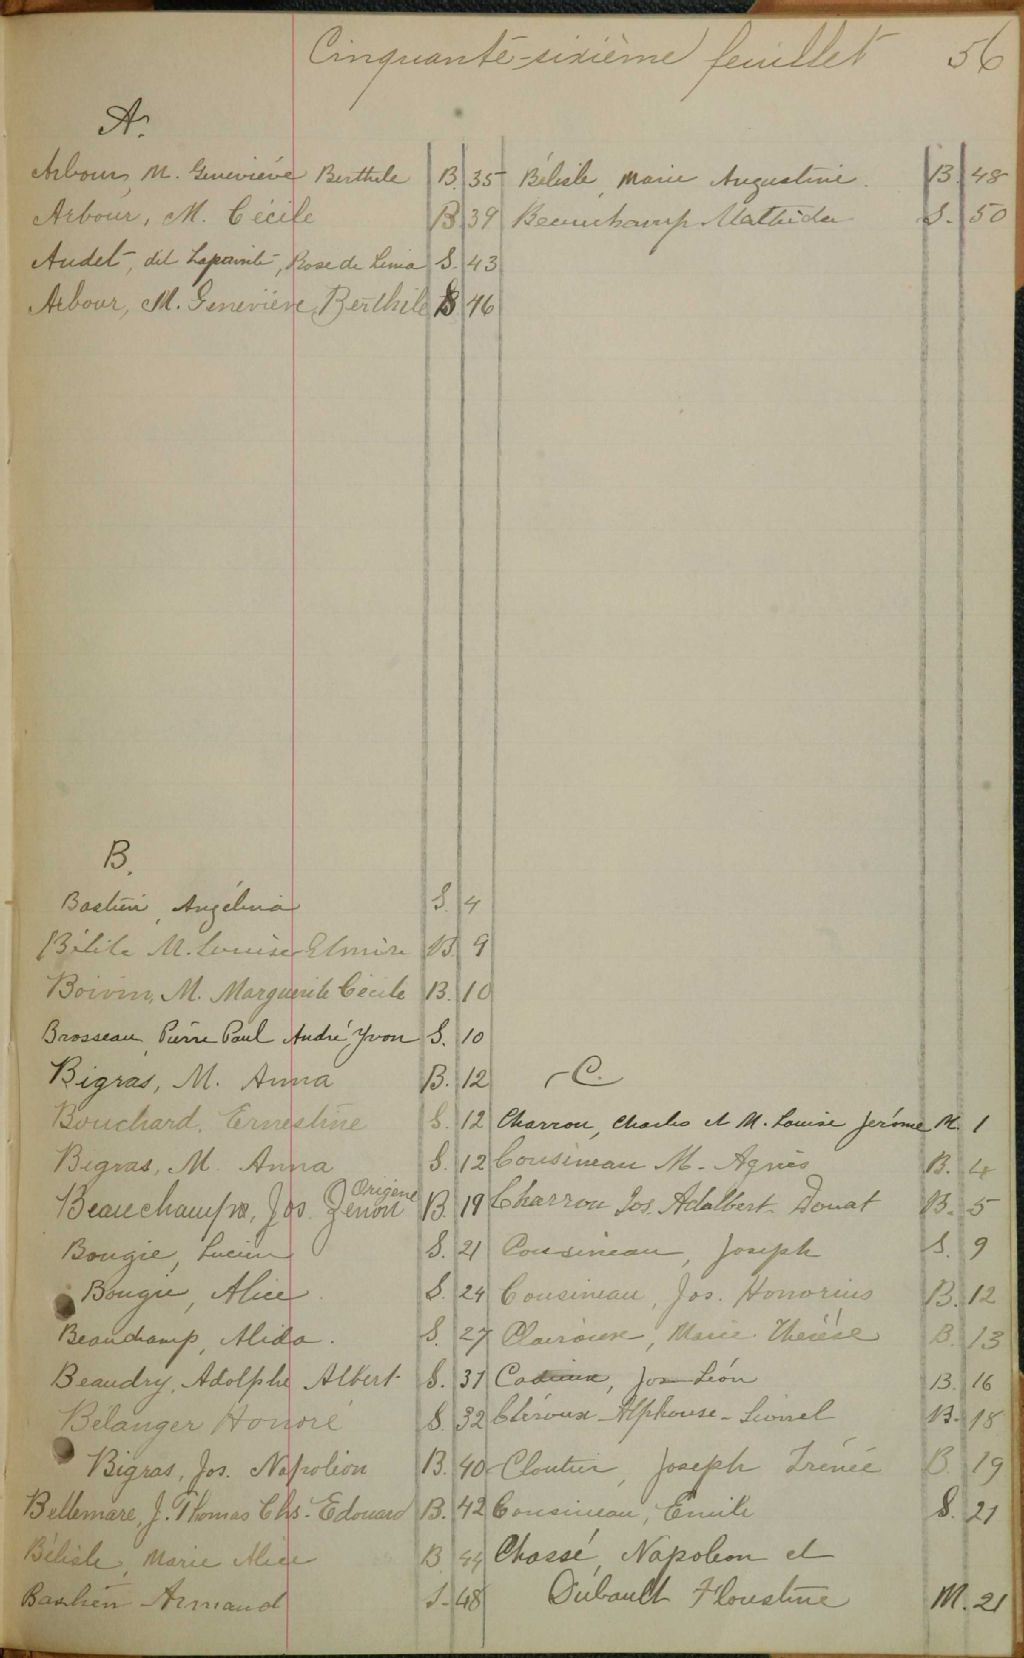 Cinquante-sixième feuillet 56
A.
Arbour, M. Geneviève Berthile B. 35
Arbour, M. Cécile B. 39
Audet, dit Lapointe, Rose de Lima S. 43
Arbour, M. Geneviève Berthile S 46
Bélisle, Marie Augustine. B. 48
Beauchamp Mathilda S. 50
B.
Bastien, Angélina S. 4
Bélile M. Louise Elmire B. 9
Boivin, M. Marguerite Cécile B. 10
Brosseau, Pierre Paul André, Yvon S. 10
Bigras, M. Anna B. 12
Bouchard, Ernestine S. 12
Bigras, M. Anna S. 12
Beauchamp, Jos. Origène Zénon B. 19
Bougie, Lucien S. 21
Bougie, Alice. S. 24
Beauchamp, Alida. S. 27
Beaudry, Adolphe Albert S. 31
Bélanger Honoré S. 32
Bigras, Jos. Napoléon B. 40
Bellemare, J. Thomas Chs. Edouard B. 42
Bélisle, Marie Alice B. 44
Bastien Armand S. 48
C.
Charron, Charles et M. Louise Jérôme M. 1
Cousineau M. Agnès B. 4
Charron Jos. Adalbert Donat B. 5
Cousineau, Joseph S. 9
Cousineau, Jos. Honorius B. 12
Clairoux, Marie Thérèse B. 13
Cadieux, Jos Léon B. 16
Cléroux Alphonse Lionel B. 18
Cloutier, Joseph Irénée B. 19
Cousineau, Emile S. 21
Chassé, Napoléon et
Dubault Florestine M. 21